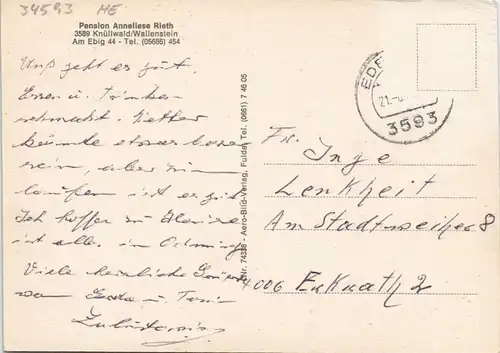 34593 HE
Pension Anneliese Rieth
3589 Knüllwald/Wallenstein
Am Ebig 44 - Tel. (05686) 454
Uns geht es gut,
Essen u. Trinken
schmeckt. Wetter
könnte etwas besser
sein, aber zum
laufen ist es gut
Ich hoffe zu Hause
ist alles in Ordnung
Viele herzliche Grüße
von Gerda u. Toni
Nr. 74338 - Aero-Bild-Verlag, Fulda, Tel. (0661) 7 46 05
EDE
21.
3593
Fr. Inge
Lenkheit
Am Stadtweiher 8
4006 Erkrath 2